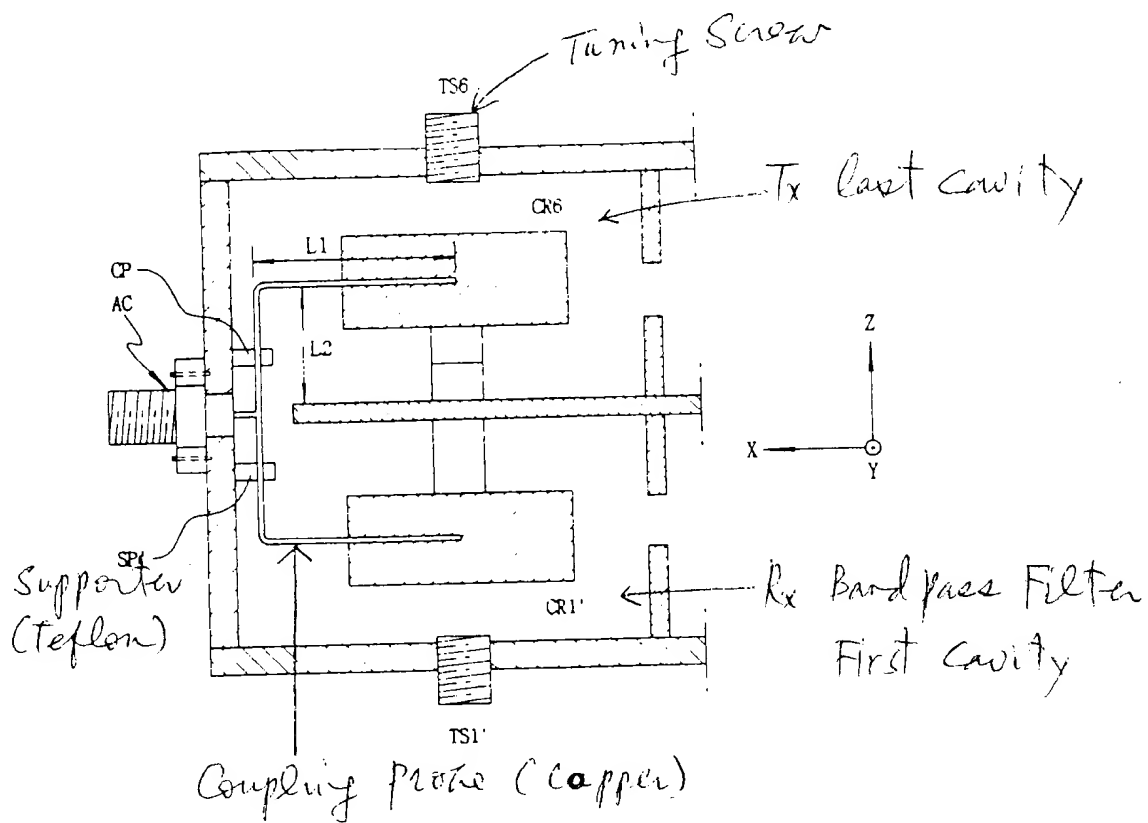 Tuning Screw
TS6
Tx last cavity
CR6
L1
CP
AC
L2
Z
X
Y
SP1
Supporter
(Teflon)
CR1'
Rx Bandpass Filter
First Cavity
TS1'
Coupling probe (Copper)